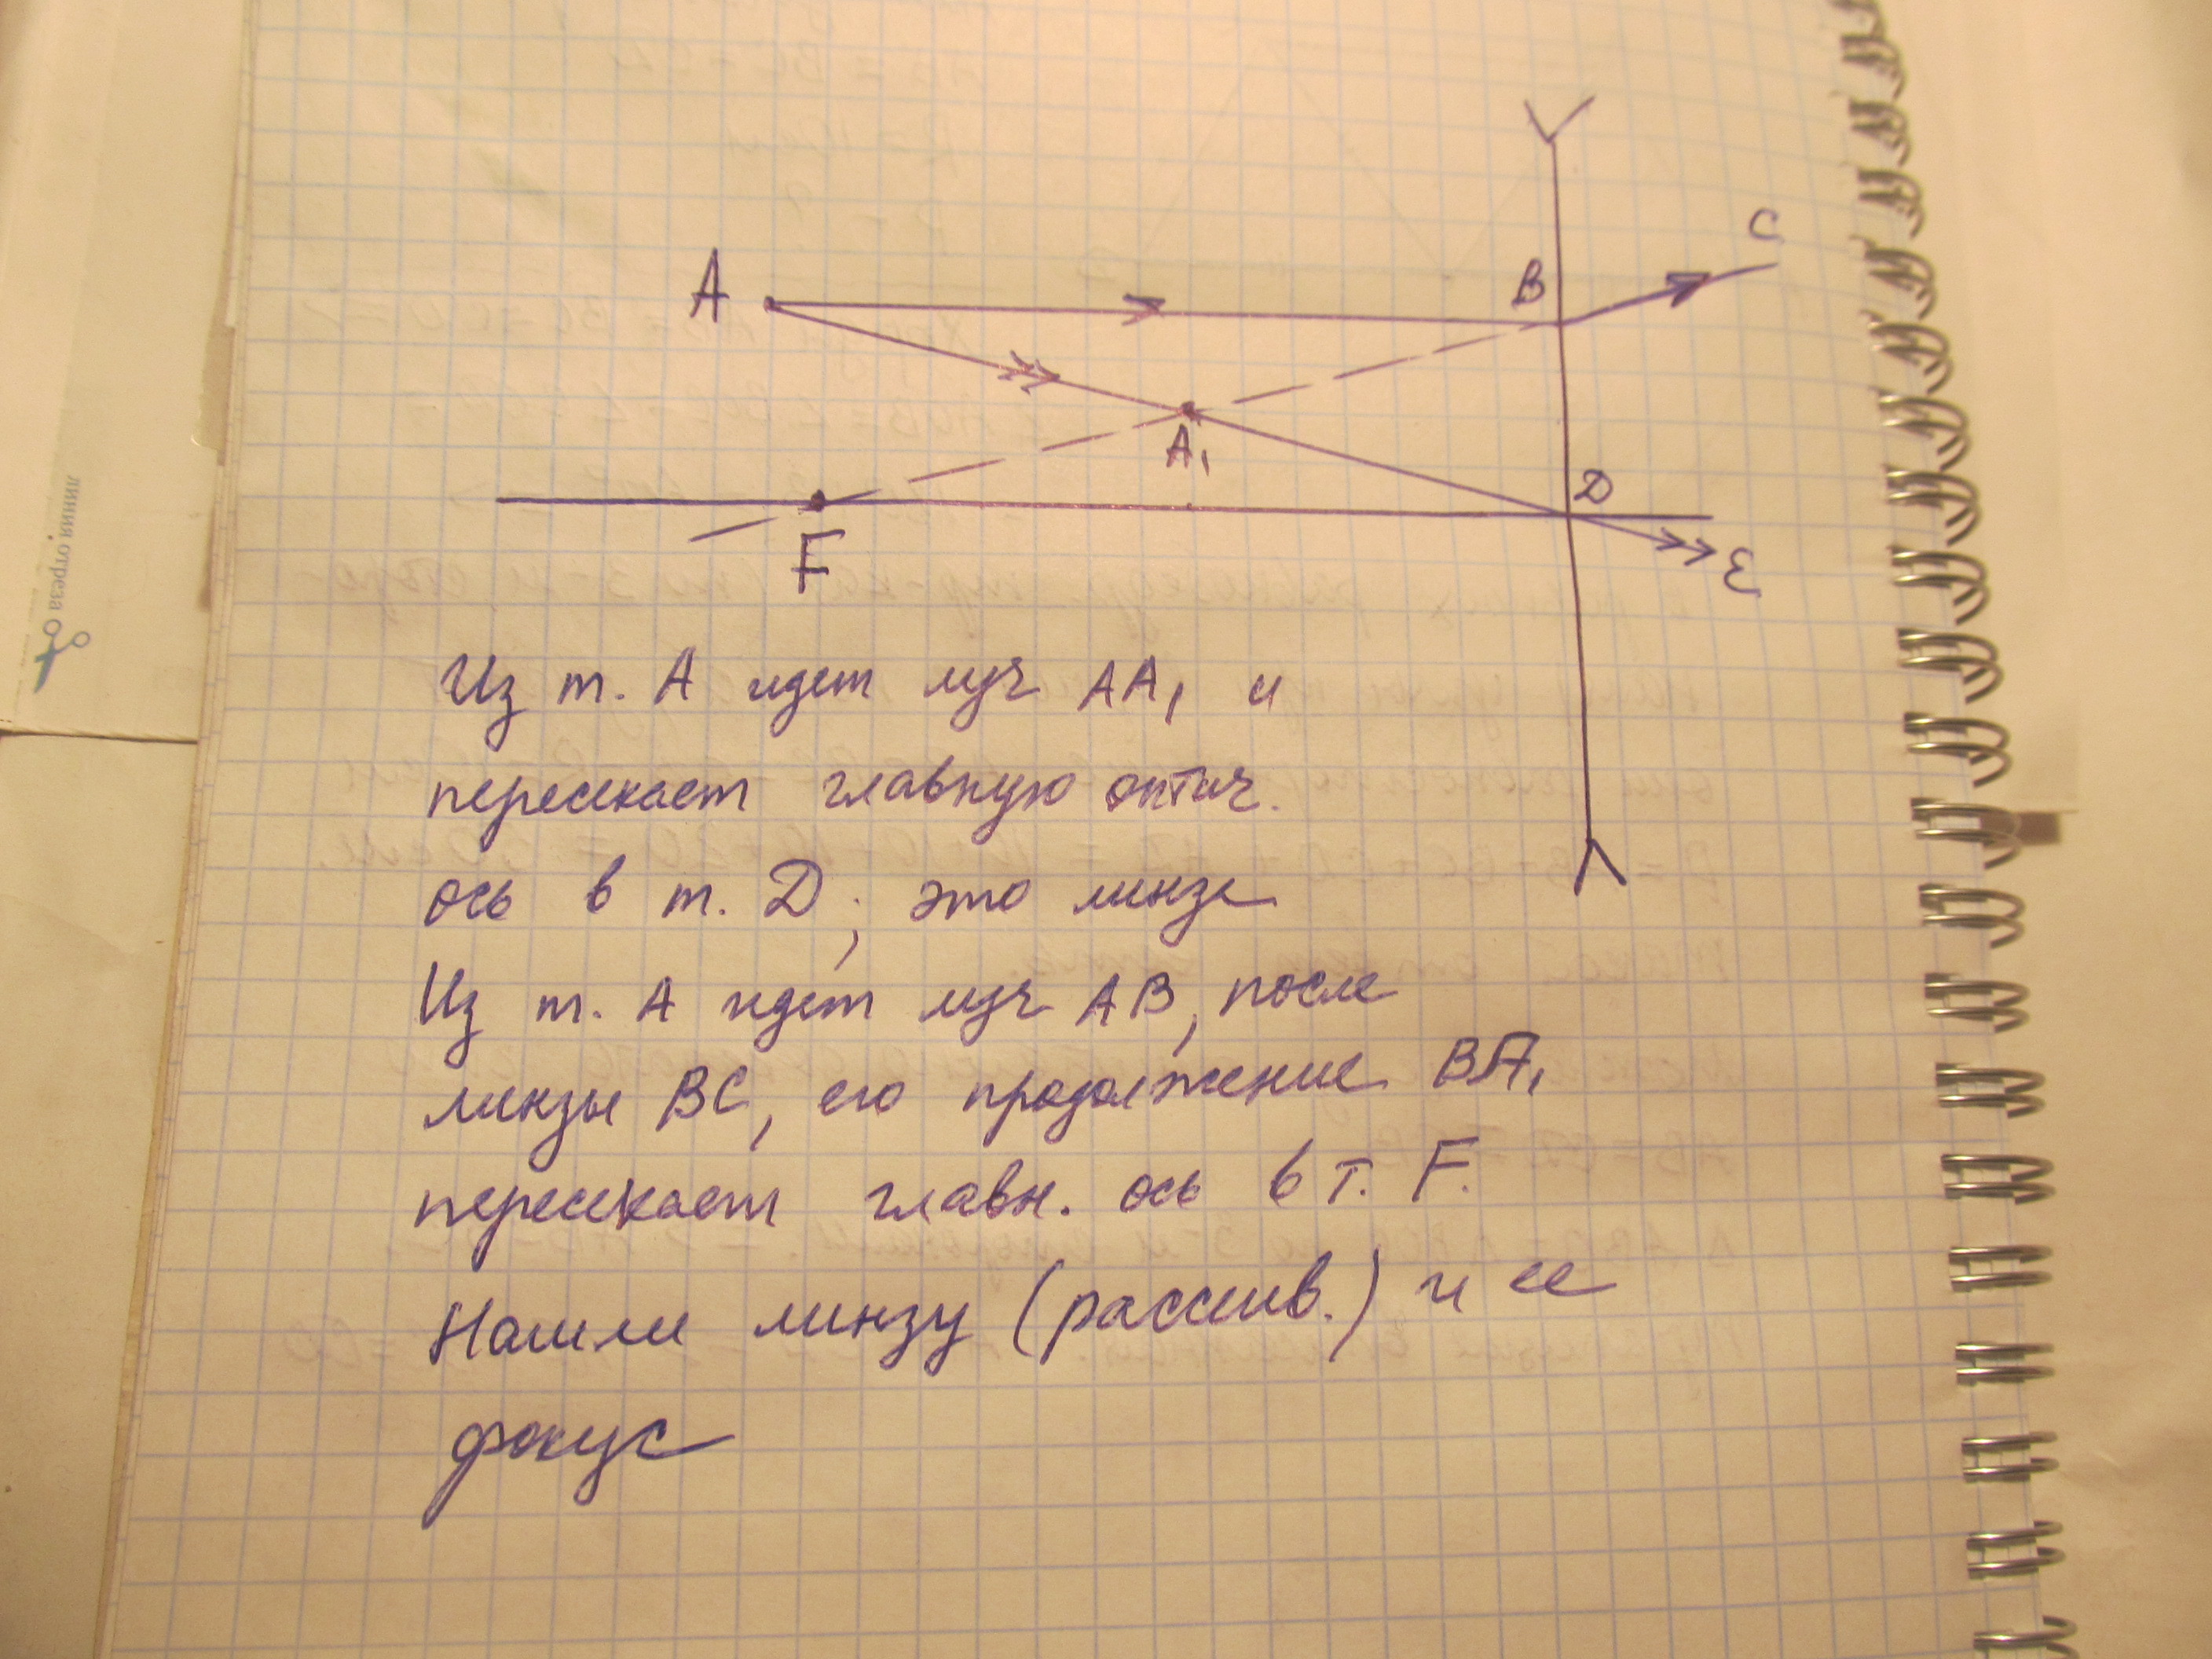 линия отреза
A
B
C
A₁
D
F
E
Из т. А идет луч АА₁ и
пересекает главную оптич.
ось в т. D; это линза
Из т. А идет луч АВ, после
линзы ВС, его продолжение ВА₁
пересекает главн. ось в т. F.
Нашли линзу (рассеив.) и ее
фокус